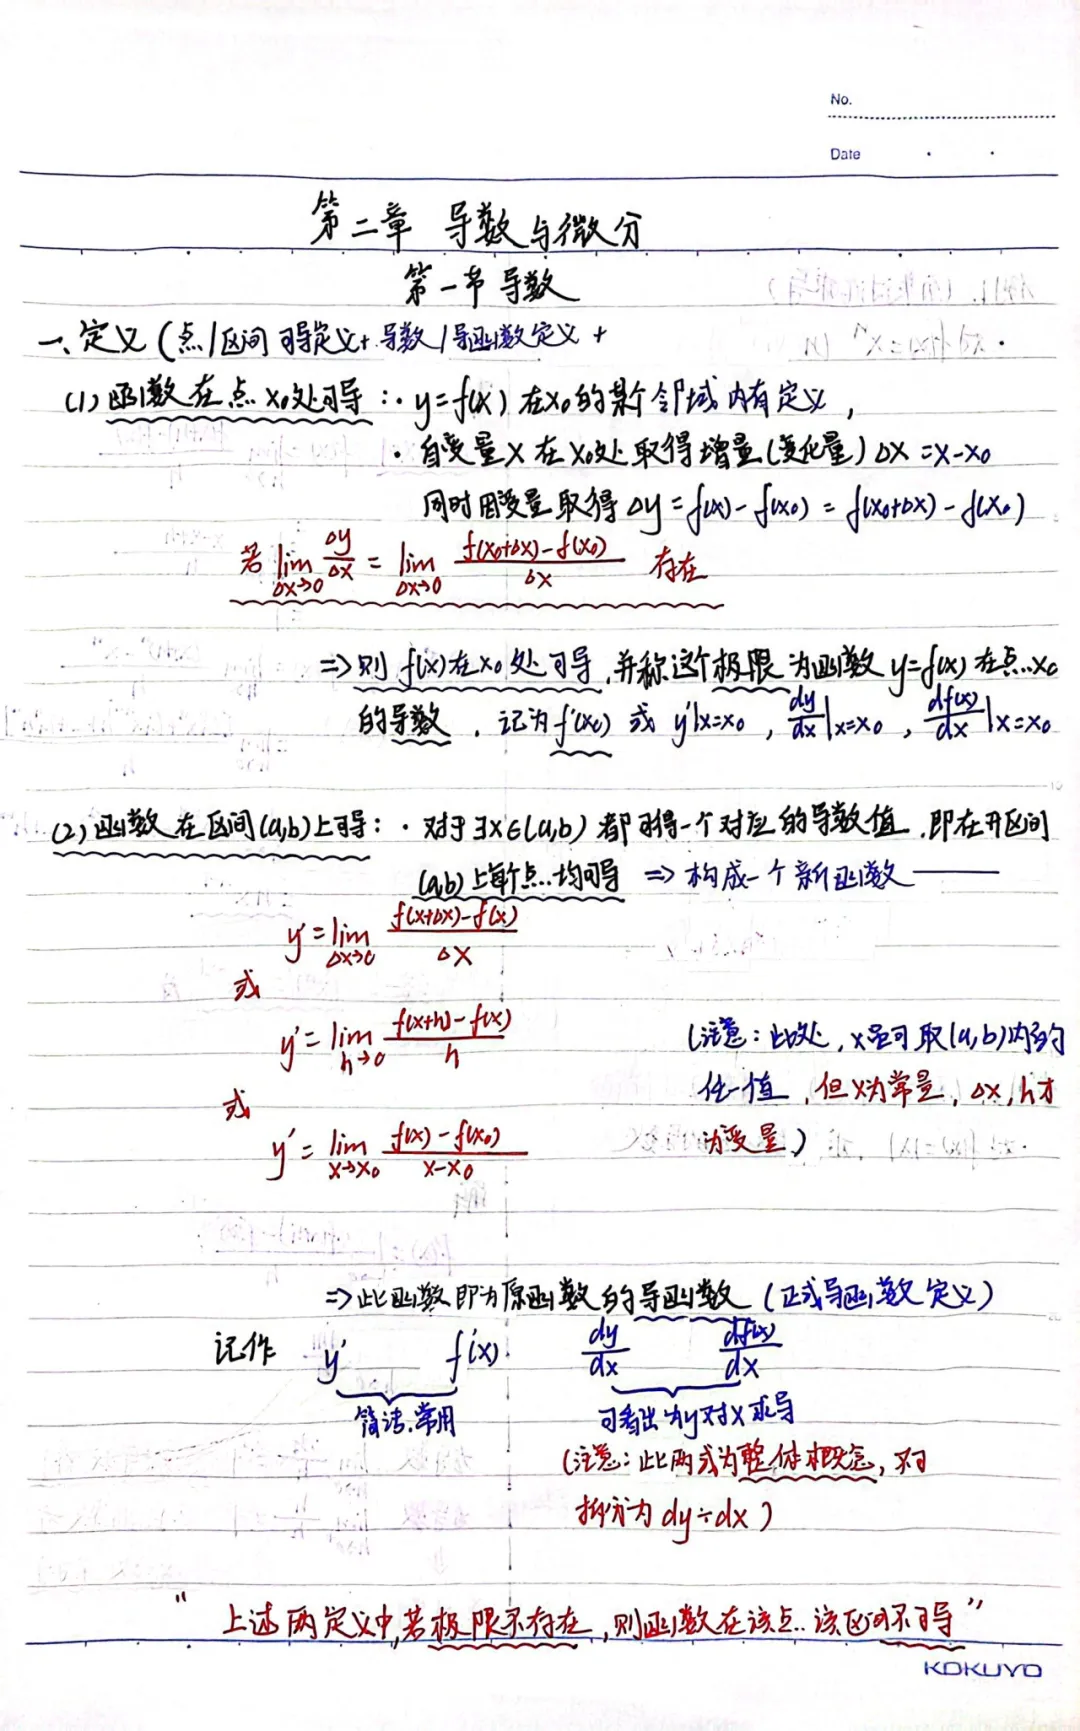 No.
Date
第二章 导数与微分
第一节 导数
一、定义 (点/区间 可导定义+ 导数/导函数定义 +
(1) 函数在点x₀处可导: · y=f(x) 在x₀的某个邻域内有定义,
· 自变量x在x₀处取得增量(变化量) Δx=x-x₀
同时因变量取得 Δy=f(x)-f(x₀) = f(x₀+Δx)-f(x₀)
若 lim Δx→0 Δy/Δx = lim Δx→0 f(x₀+Δx)-f(x₀)/Δx 存在
⇒则 f(x)在x₀处可导,并称这个极限为函数 y=f(x) 在点x₀
的导数, 记为f'(x₀) 或 y'|x=x₀, dy/dx|x=x₀, df(x)/dx|x=x₀
(2)函数在区间(a,b)上可导: · 对于∃x∈(a,b) 都可得一个对应的导数值,即在开区间
(a,b)上每个点均可导 ⇒ 构成一个新函数——
y'=lim Δx→0 f(x+Δx)-f(x)/Δx
或
y'=lim h→0 f(x+h)-f(x)/h
(注意:此处,x虽可取(a,b)内的
任一值,但x为常量,Δx,h才
为变量)
或
y'=lim x→x₀ f(x)-f(x₀)/x-x₀
⇒此函数即为原函数的导函数 (正式导函数定义)
记作 y' f'(x) dy/dx df(x)/dx
简洁.常用 可看出为y对x求导
(注意:此两式为整体概念,不可
拆分为 dy÷dx)
“上述两定义中,若极限不存在,则函数在该点..该区间不可导”
KOKUYO